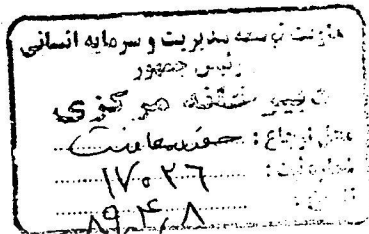 معاونت توسعه مدیریت و سرمایه انسانی
رئیس جمهور
دبیرخانه مرکزی
محل ارجاع :
شماره ثبت : ۱۷۰۲۶
تاریخ : ۸۹/۴/۸